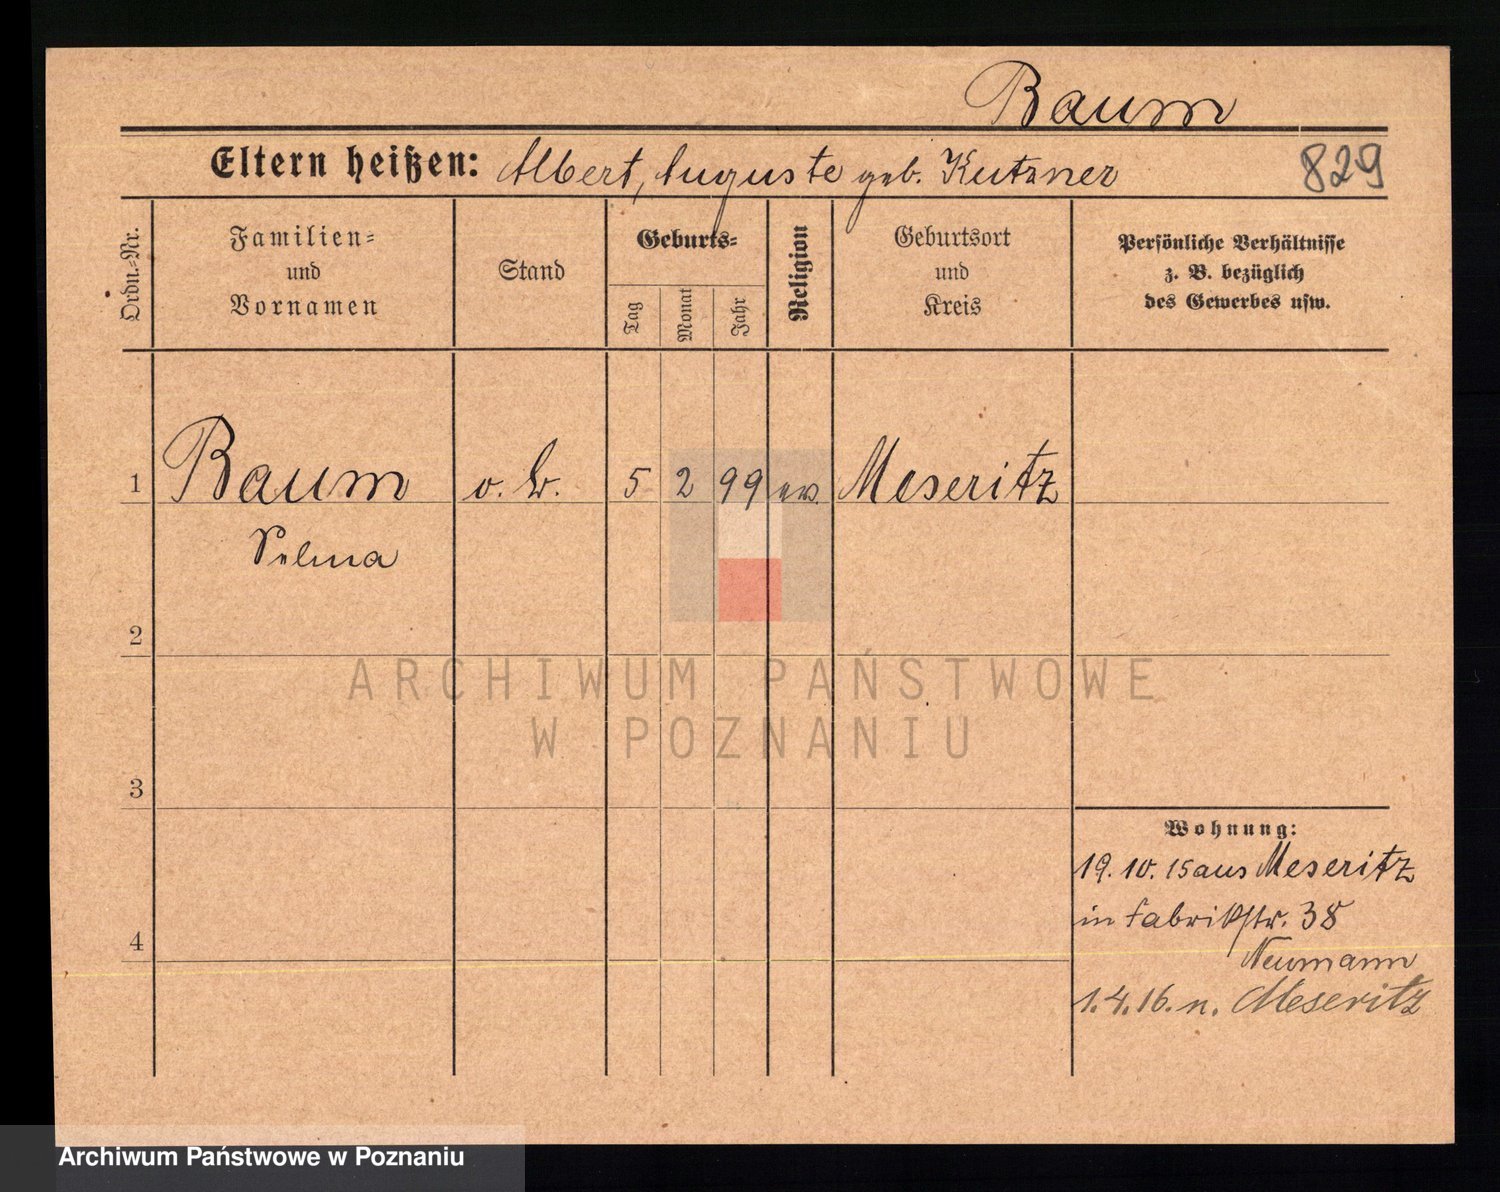 Baum
Eltern heißen: Albert, Auguste geb. Kutzner
829
Ordn.-Nr.
Familien-
und
Vornamen
Stand
Geburts-
Tag
Monat
Jahr
Religion
Geburtsort
und
Kreis
Persönliche Verhältnisse
z. B. bezüglich
des Gewerbes usw.
1 Baum o. B. 5 2 99 ev. Meseritz
Selma
2
ARCHIWUM PAŃSTWOWE
W POZNANIU
3
Wohnung:
19.10.15 aus Meseritz
in Fabrikstr. 38
4
Neumann
1.4.16. n. Meseritz
Archiwum Państwowe w Poznaniu